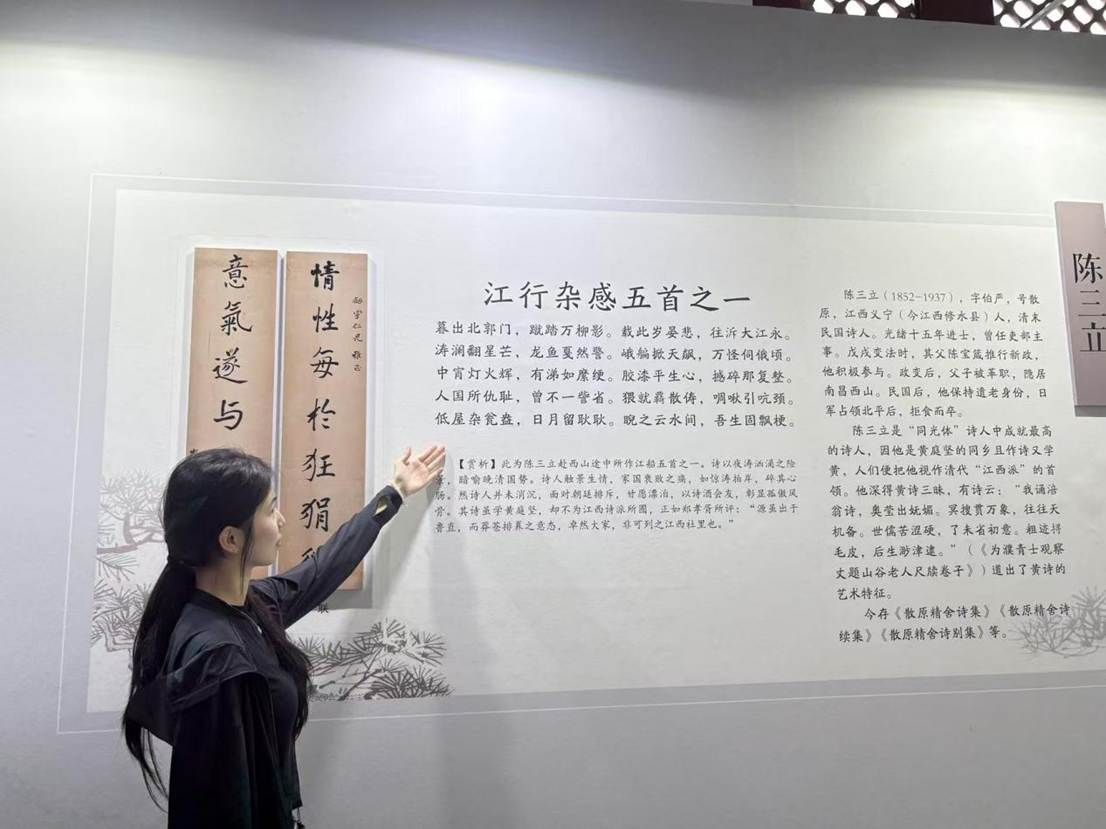 情性每於狂狷
意氣遂与
联
江行杂感五首之一
暮出北郭门，蹴踏万柳影。载此岁晏悲，往泝大江永。
涛澜翻星芒，龙鱼戛然警。峨舸掀天飙，万怪伺俄顷。
中宵灯火辉，有涕如縻绠。胶漆平生心，撼碎那复整。
人国所仇耻，曾不一訾省。猥就羁散俦，啁啾引吭颈。
低屋杂瓮盎，日月留耿耿。睨之云水间，吾生固飘梗。
【赏析】此为陈三立赴西山途中所作江船五首之一。诗以夜涛汹涌之险
景，暗喻晚清国势。诗人触景生情，家国衰败之痛，如惊涛拍岸，碎其心
肠。然诗人并未消沉，面对朝廷排斥，甘愿漂泊，以诗酒会友，彰显孤傲风
骨。其诗虽学黄庭坚，却不为江西诗派所囿，正如郑孝胥所评：“源虽出于
鲁直，而莽苍排奡之意态，卓然大家，非可列之江西社里也。”
陈三立（1852-1937），字伯严，号散
原，江西义宁（今江西修水县）人，清末
民国诗人。光绪十五年进士，曾任吏部主
事。戊戌变法时，其父陈宝箴推行新政，
他积极参与。政变后，父子被革职，隐居
南昌西山。民国后，他保持遗老身份，日
军占领北平后，拒食而卒。
陈三立是“同光体”诗人中成就最高
的诗人，因他是黄庭坚的同乡且作诗又学
黄，人们便把他视作清代“江西派”的首
领。他深得黄诗三昧，有诗云：“我诵涪
翁诗，奥莹出妩媚。冥搜贯万象，往往天
机备。世儒苦涩硬，了未省初意。粗迹挦
毛皮，后生渺津逮。”（《为濮青士观察
丈题山谷老人尺牍卷子》）道出了黄诗的
艺术特征。
今存《散原精舍诗集》《散原精舍诗
续集》《散原精舍诗别集》等。
陈三立